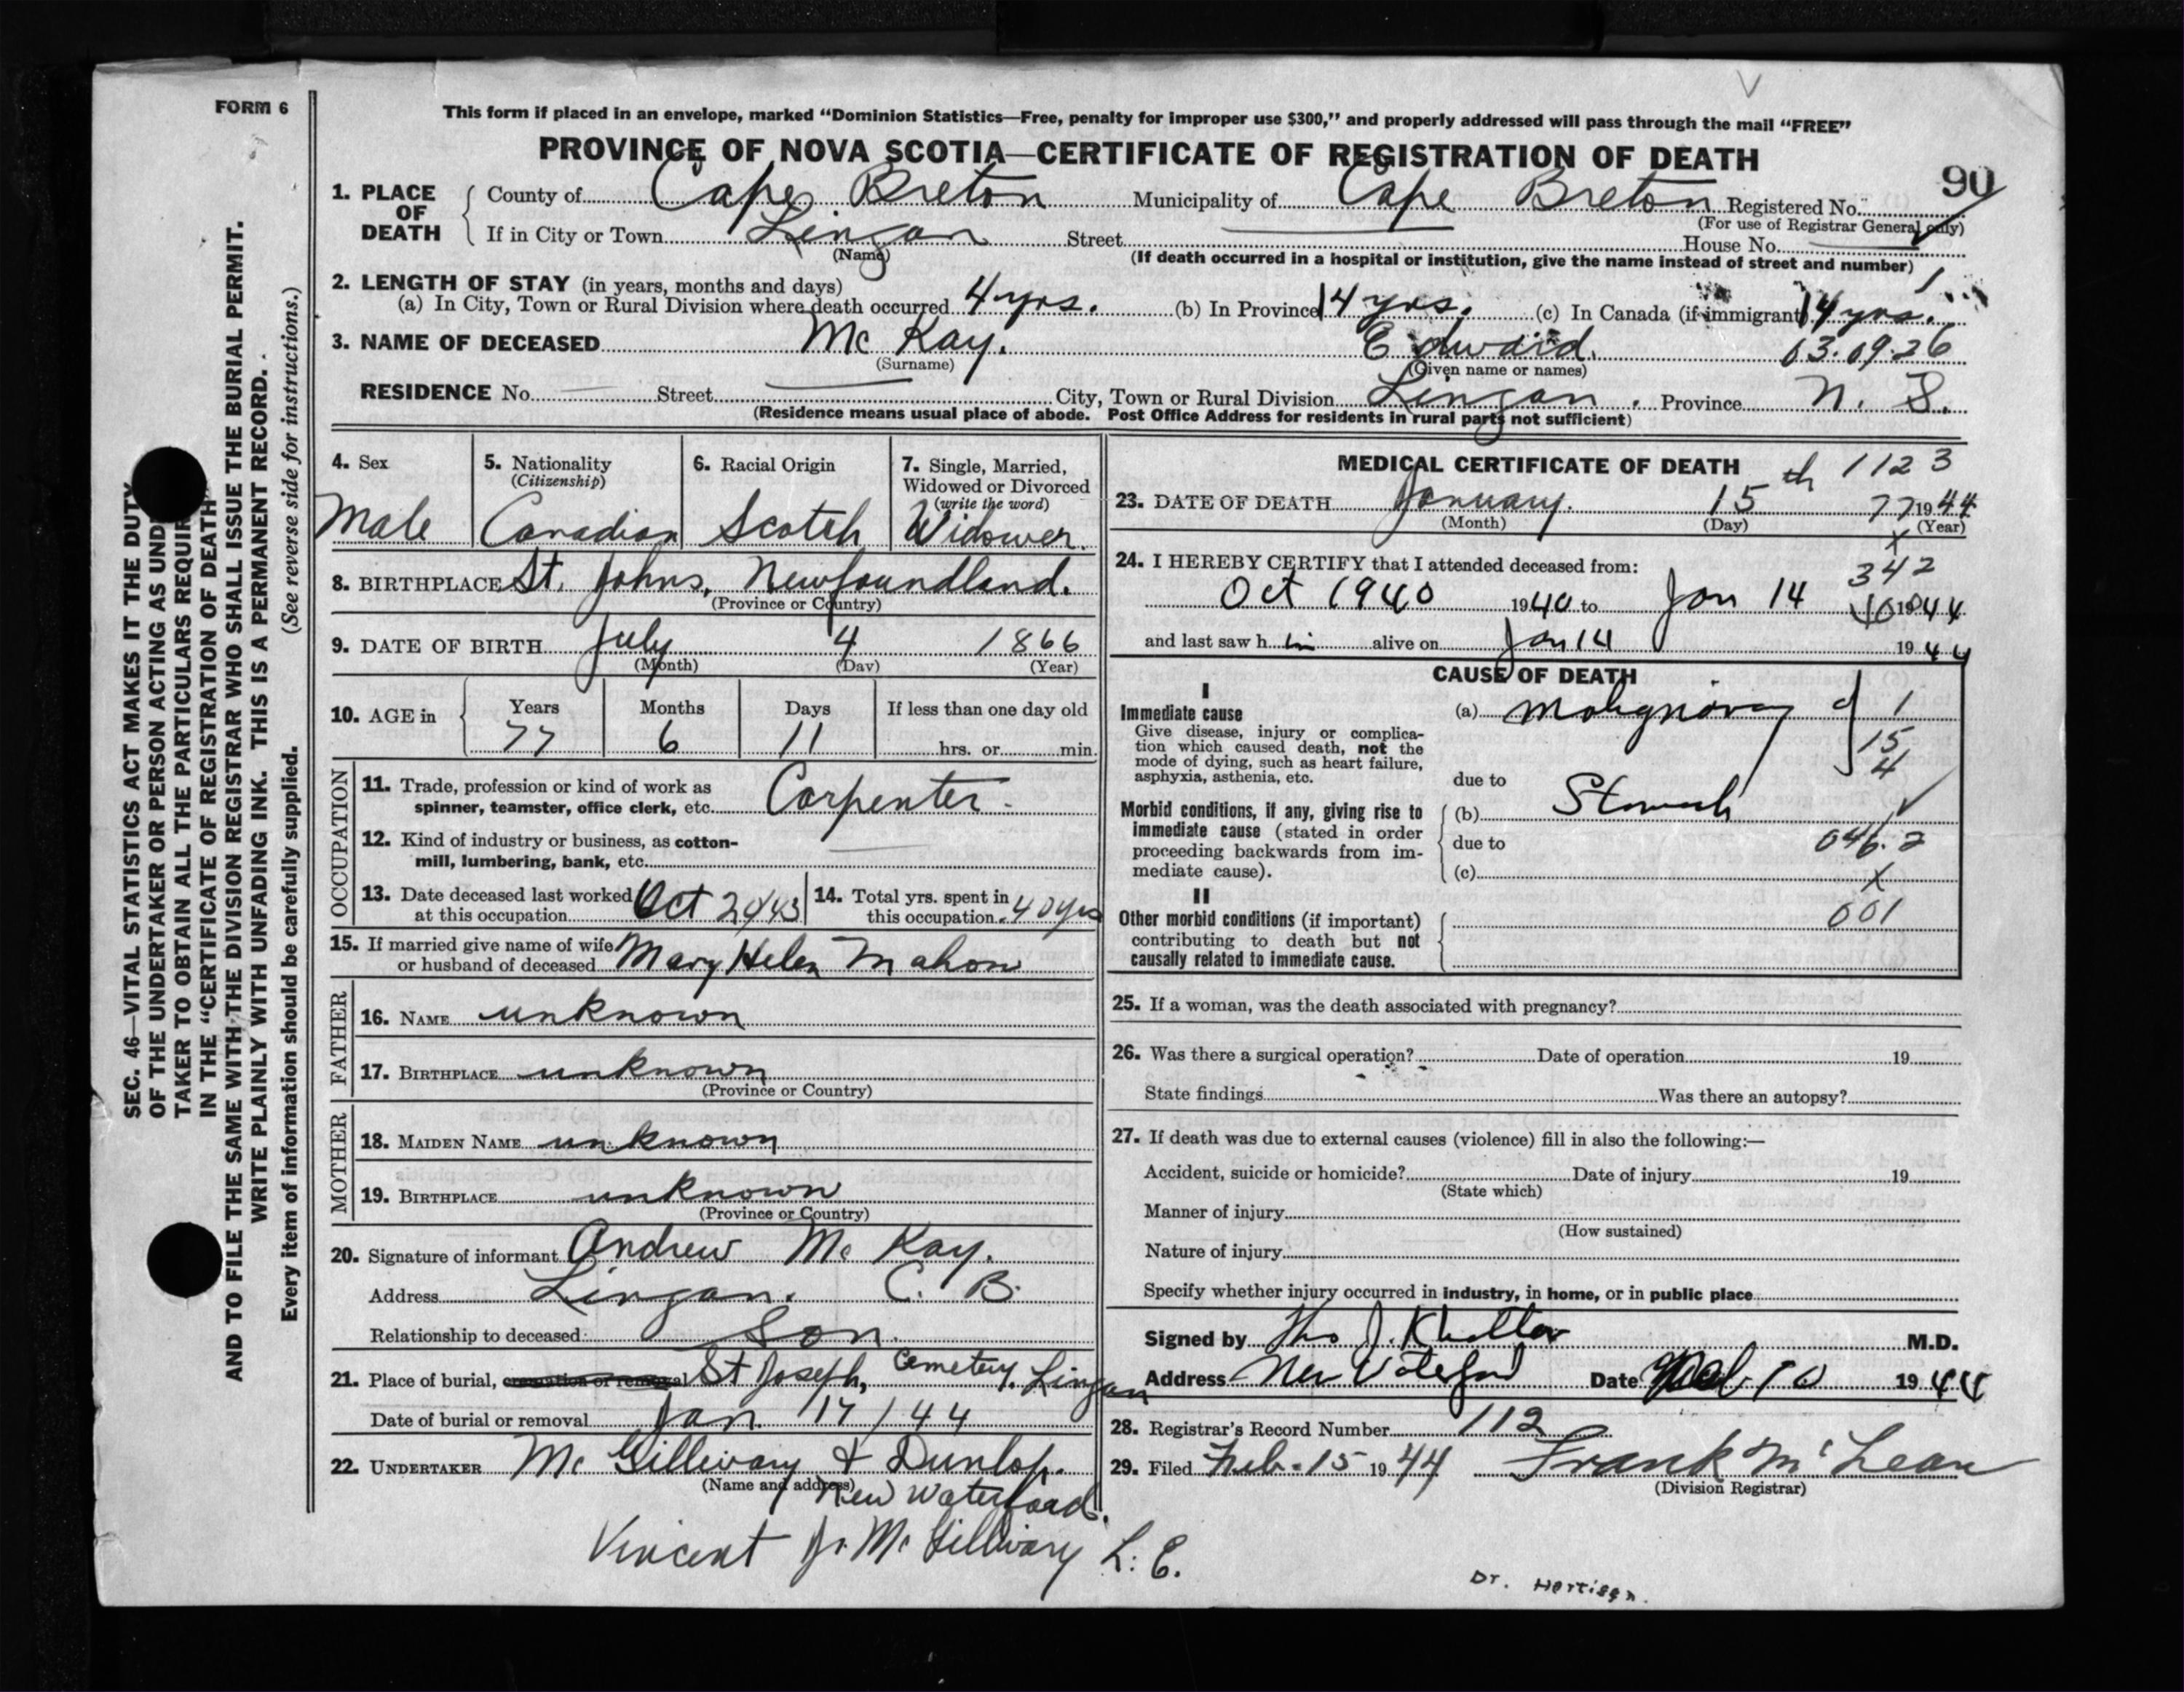 FORM 6
This form if placed in an envelope, marked "Dominion Statistics—Free, penalty for improper use $300," and properly addressed will pass through the mail "FREE"
PROVINCE OF NOVA SCOTIA—CERTIFICATE OF REGISTRATION OF DEATH
90
1. PLACE OF DEATH
County of Cape Breton Municipality of Cape Breton Registered No.
(For use of Registrar General only)
If in City or Town Lingan Street House No.
(Name) (If death occurred in a hospital or institution, give the name instead of street and number)
2. LENGTH OF STAY (in years, months and days)
(a) In City, Town or Rural Division where death occurred 4 yrs. (b) In Province 14 yrs. (c) In Canada (if immigrant) 14 yrs.
3. NAME OF DECEASED Mc Kay. Edward. 03.09.26
(Surname) (Given name or names)
RESIDENCE No. Street City, Town or Rural Division Lingan. Province N. S.
(Residence means usual place of abode. Post Office Address for residents in rural parts not sufficient)
4. Sex Male
5. Nationality (Citizenship) Canadian
6. Racial Origin Scotch
7. Single, Married, Widowed or Divorced (write the word) Widower.
8. BIRTHPLACE St. Johns, Newfoundland.
(Province or Country)
9. DATE OF BIRTH July 4 1866
(Month) (Day) (Year)
10. AGE in Years Months Days If less than one day old
77 6 11 hrs. or min.
OCCUPATION
11. Trade, profession or kind of work as spinner, teamster, office clerk, etc. Carpenter.
12. Kind of industry or business, as cotton-mill, lumbering, bank, etc.
13. Date deceased last worked at this occupation Oct
14. Total yrs. spent in this occupation 40 yrs
15. If married give name of wife or husband of deceased Mary Helen Mahon
FATHER
16. NAME unknown
17. BIRTHPLACE unknown
(Province or Country)
MOTHER
18. MAIDEN NAME unknown
19. BIRTHPLACE unknown
(Province or Country)
20. Signature of informant Andrew Mc Kay.
Address Lingan. C. B.
Relationship to deceased: Son.
21. Place of burial, cremation or removal St Joseph, Cemetery. Lingan
Date of burial or removal Jan 17/44
22. UNDERTAKER Mc Gillivary & Dunlop.
(Name and address) New Waterford.
Vincent J. Mc Gillivary L. E.
MEDICAL CERTIFICATE OF DEATH 1123
23. DATE OF DEATH January. 15th 77 1944
(Month) (Day) (Year)
x
24. I HEREBY CERTIFY that I attended deceased from: 342
Oct 1940 1940 to Jan 14 1944
and last saw h im alive on Jan 14 1944
CAUSE OF DEATH
I
Immediate cause
Give disease, injury or complication which caused death, not the mode of dying, such as heart failure, asphyxia, asthenia, etc.
(a) Malignancy of 1
15
4
due to
Morbid conditions, if any, giving rise to immediate cause (stated in order proceeding backwards from immediate cause).
(b) Stomach
due to 046.2
(c) x
II
001
Other morbid conditions (if important) contributing to death but not causally related to immediate cause.
25. If a woman, was the death associated with pregnancy?
26. Was there a surgical operation? Date of operation 19
State findings Was there an autopsy?
27. If death was due to external causes (violence) fill in also the following:—
Accident, suicide or homicide? Date of injury 19
(State which)
Manner of injury
(How sustained)
Nature of injury
Specify whether injury occurred in industry, in home, or in public place
Signed by Thos J. M.D.
Address New Waterford Date 10 1944
28. Registrar's Record Number 112
29. Filed Feb. 15 1944 Frank McLean
(Division Registrar)
Dr.
SEC. 46—VITAL STATISTICS ACT MAKES IT THE DUTY
OF THE UNDERTAKER OR PERSON ACTING AS UND
TAKER TO OBTAIN ALL THE PARTICULARS REQUIR
IN THE "CERTIFICATE OF REGISTRATION OF DEATH"
AND TO FILE THE SAME WITH THE DIVISION REGISTRAR WHO SHALL ISSUE THE BURIAL PERMIT.
WRITE PLAINLY WITH UNFADING INK. THIS IS A PERMANENT RECORD.
Every item of information should be carefully supplied. (See reverse side for instructions.)